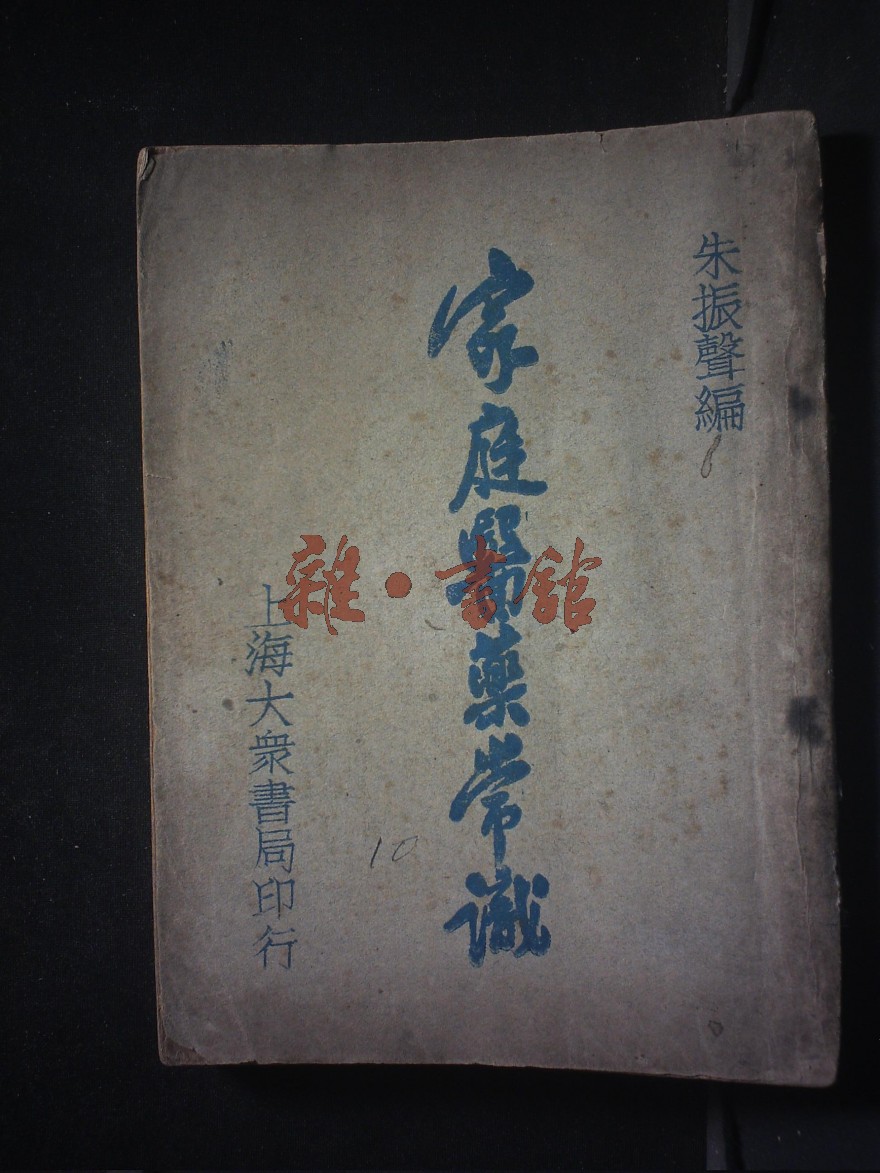 朱振聲編
家庭醫藥常識
上海大衆書局印行
雜·書館
10